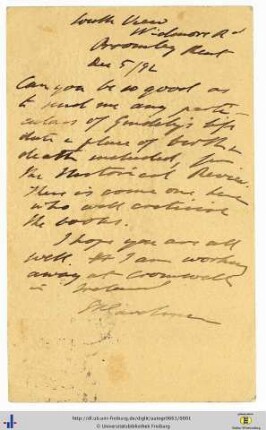 South View
Widmore Rd
Bromley Kent
Dec 5/92
Can you be so good as
to send me any parti-
culars of Gindely's life
date & place of birth &
death included, for
the Historical Review.
There is some one here
who will criticise
the books.
I hope you are all
well. I am working
away at Cromwell
in Ireland
SRGardiner
http://dl.ub.uni-freiburg.de/diglit/autogr0951/0001
© Universitätsbibliothek Freiburg